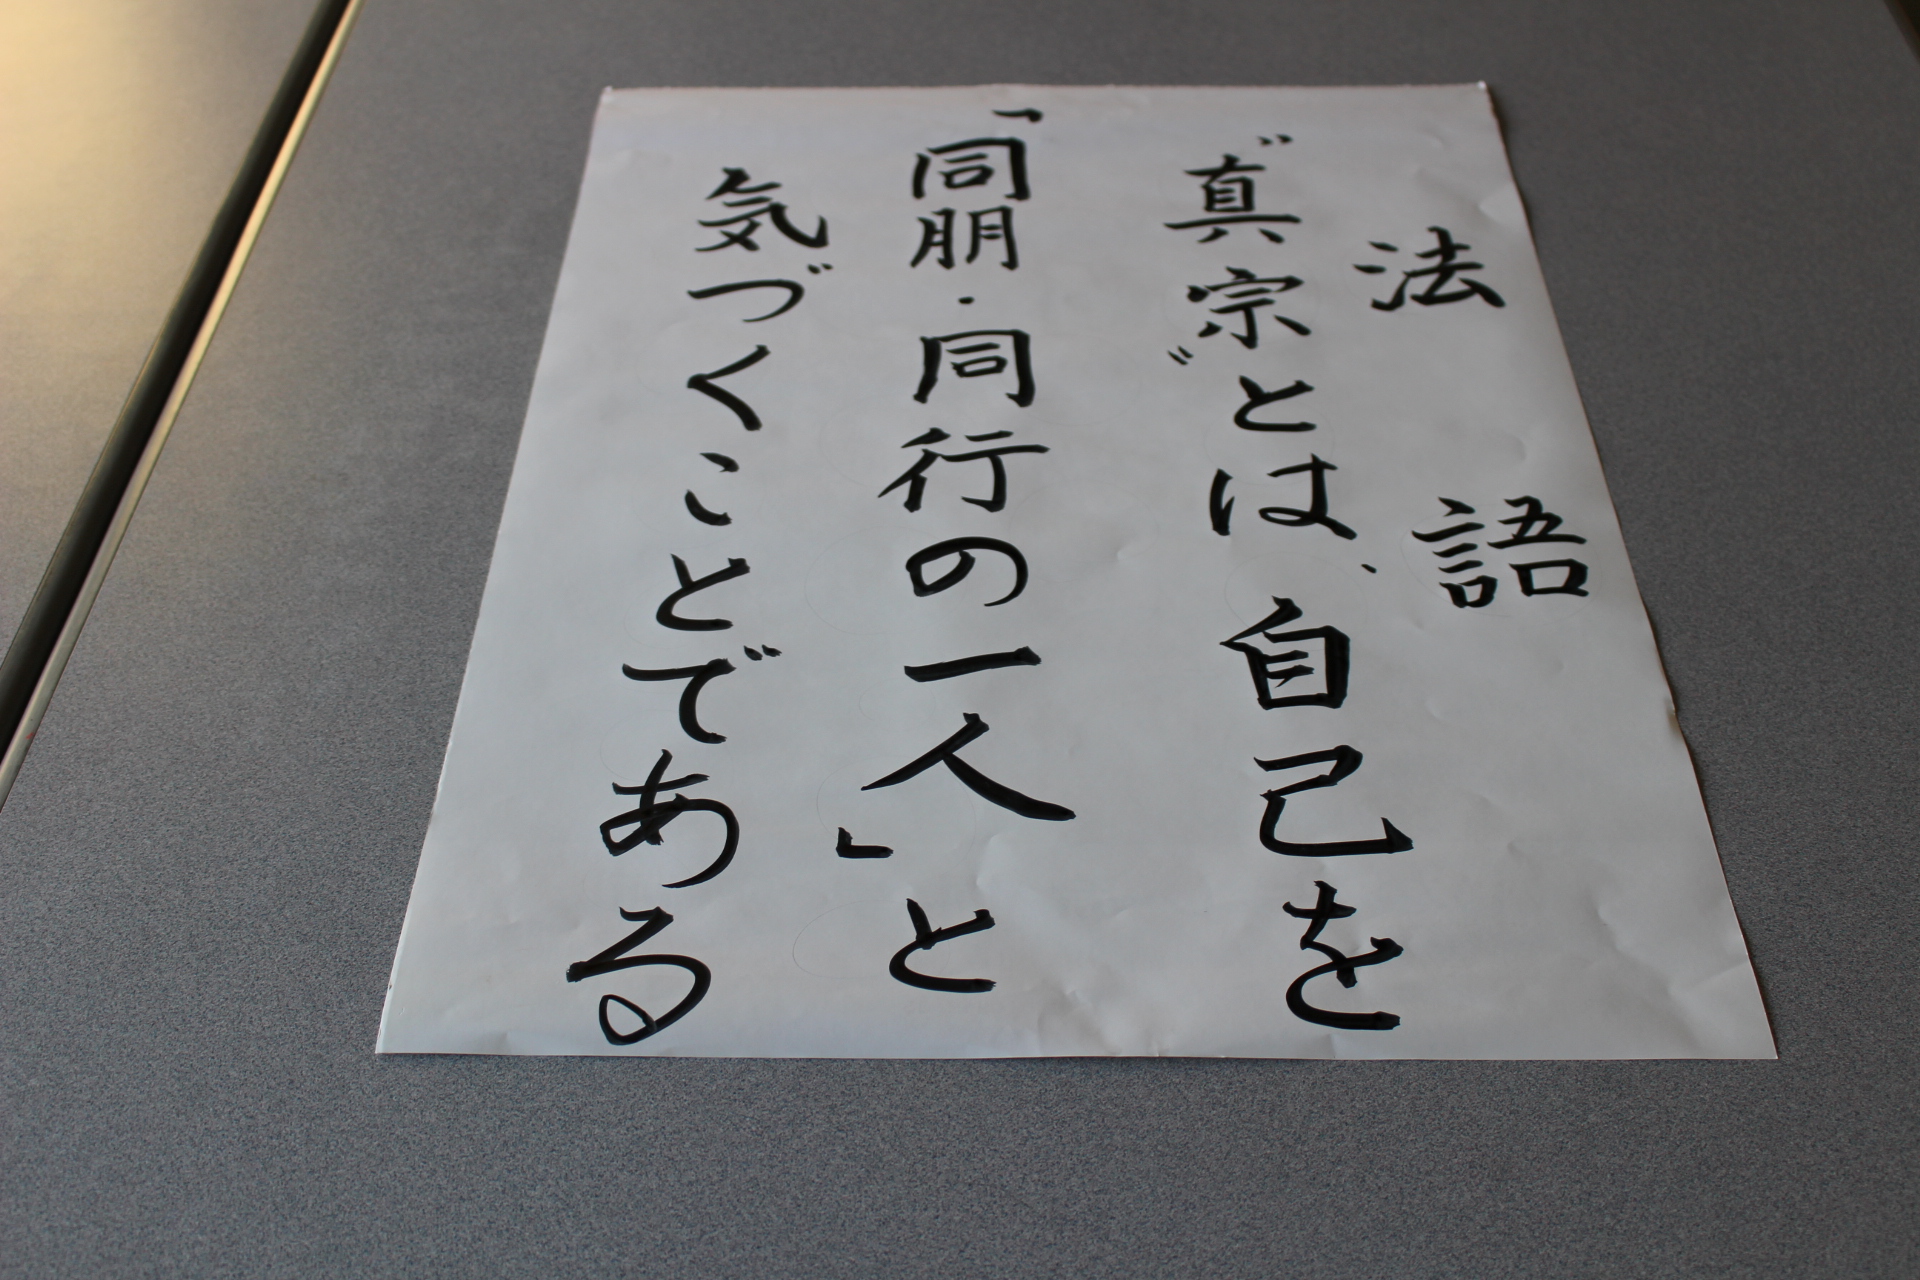 法語
〝真宗〟とは、自己を
「同朋・同行の一人」と
気づくことである